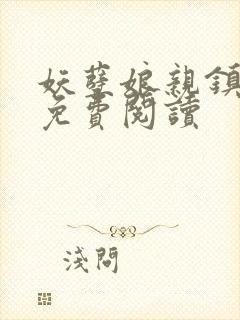 妖孽娘親鎮
免費閱讀
淺問